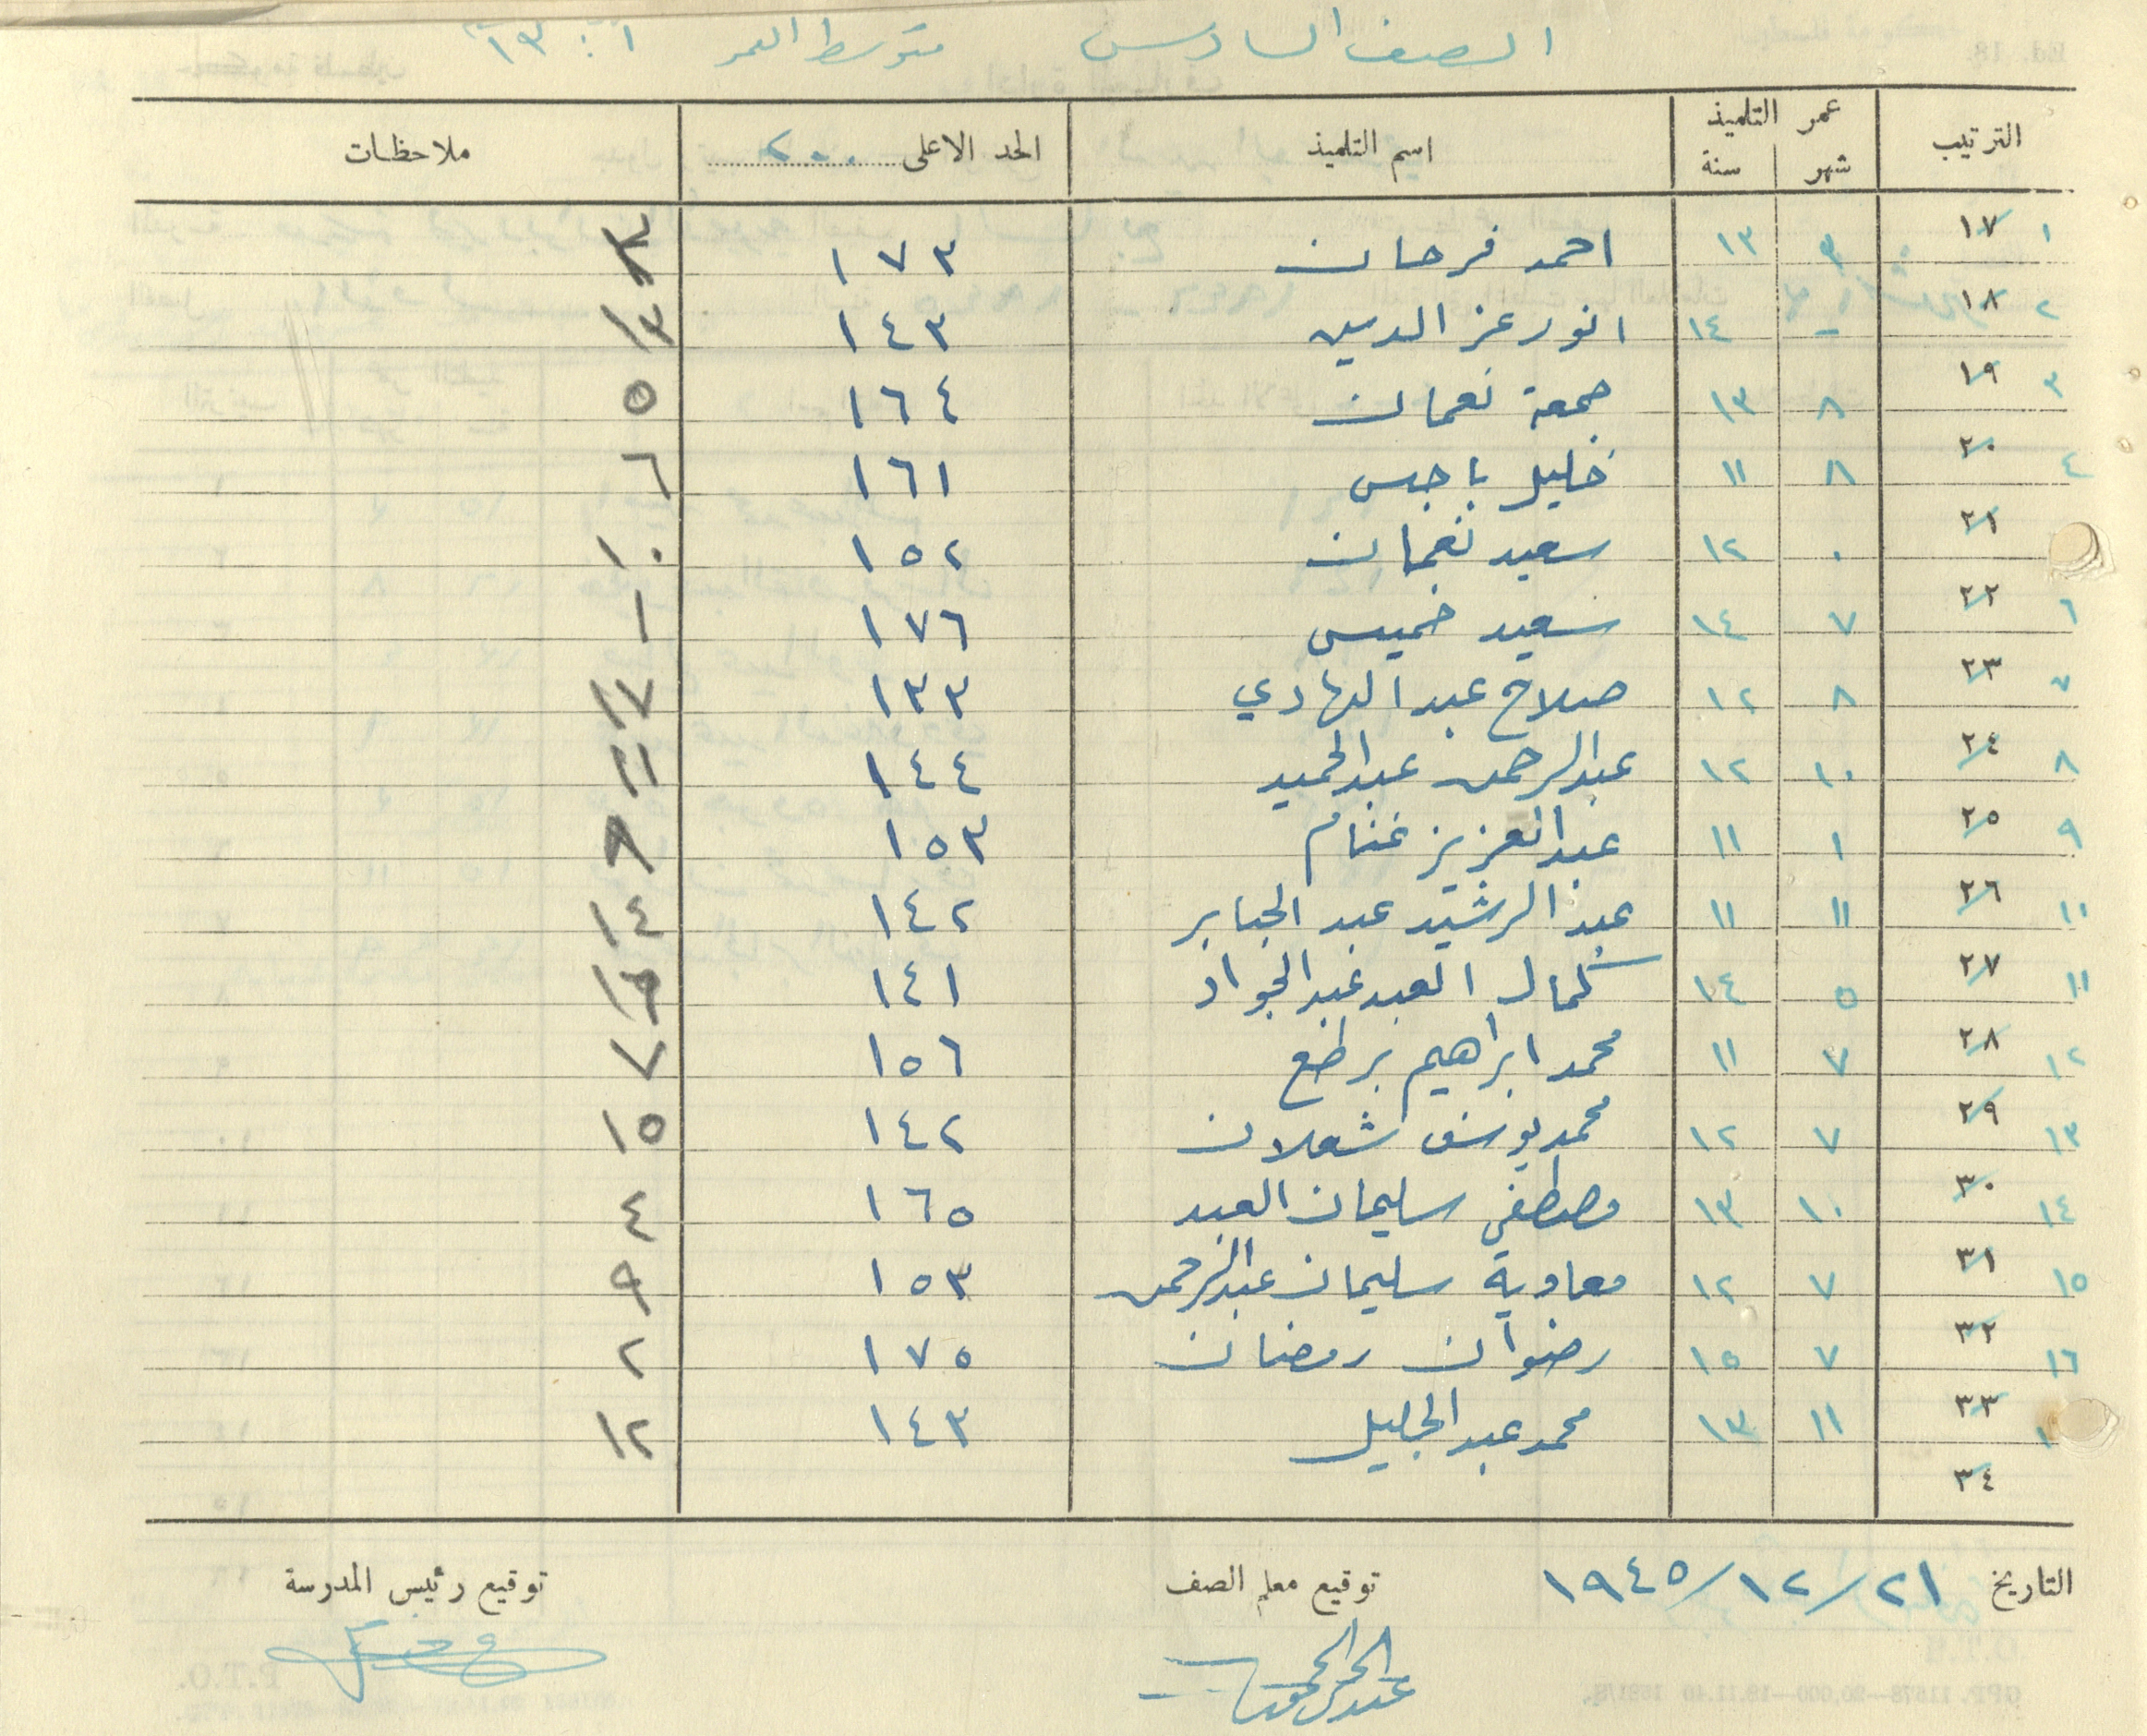 الصف السادس متوسط العمر
الترتيب عمر التلميذ اسم التلميذ الحد الاعلى ٢٠٠ ملاحظات
شهر سنة
١ ١٧ ١٣ احمد فرحان ١٧٣ ٣
٢ ١٨ - ١٤ انور عز الدين ١٤٣ ١٣
٣ ١٩ ٨ ١٣ جمعة نعمان ١٦٤ ٥
٤ ٢٠ ٨ ١١ خليل باجس ١٦١ ٦
٢١ ٠ ١٢ سعيد نعمان ١٥٢ ١٠
٦ ٢٢ ٧ ١٤ سعيد خميس ١٧٦ ١
٧ ٢٣ ٨ ١٢ صلاح عبد الهادي ١٣٣ ١٧
٨ ٢٤ ١٠ ١٢ عبد الرحمن عبد الحميد ١٤٤ ١١
٩ ٢٥ ١ ١١ عبد العزيز غنام ١٥٣ ٩
١٠ ٢٦ ١١ ١١ عبد الرشيد عبد الجابر ١٤٢ ١٤
١١ ٢٧ ٥ ١٤ كمال العبد عبد الجواد ١٤١
١٢ ٢٨ ٧ ١١ محمد ابراهيم ١٥٦ ٧
١٣ ٢٩ ٧ ١٢ محمد يوسف شعلان ١٤٢ ١٥
١٤ ٣٠ ١٠ ١٣ مصطفى سليمان العبد ١٦٥ ٤
١٥ ٣١ ٧ ١٢ معاوية سليمان عبد الرحمن ١٥٣ ٩
١٦ ٣٢ ٧ ١٥ رضوان رمضان ١٧٥ ٢
٣٣ ١١ ١٣ محمد عبد الجليل ١٤٣ ١٢
٣٤
التاريخ ٢١/١٢/١٩٤٥ توقيع معلم الصف توقيع رئيس المدرسة